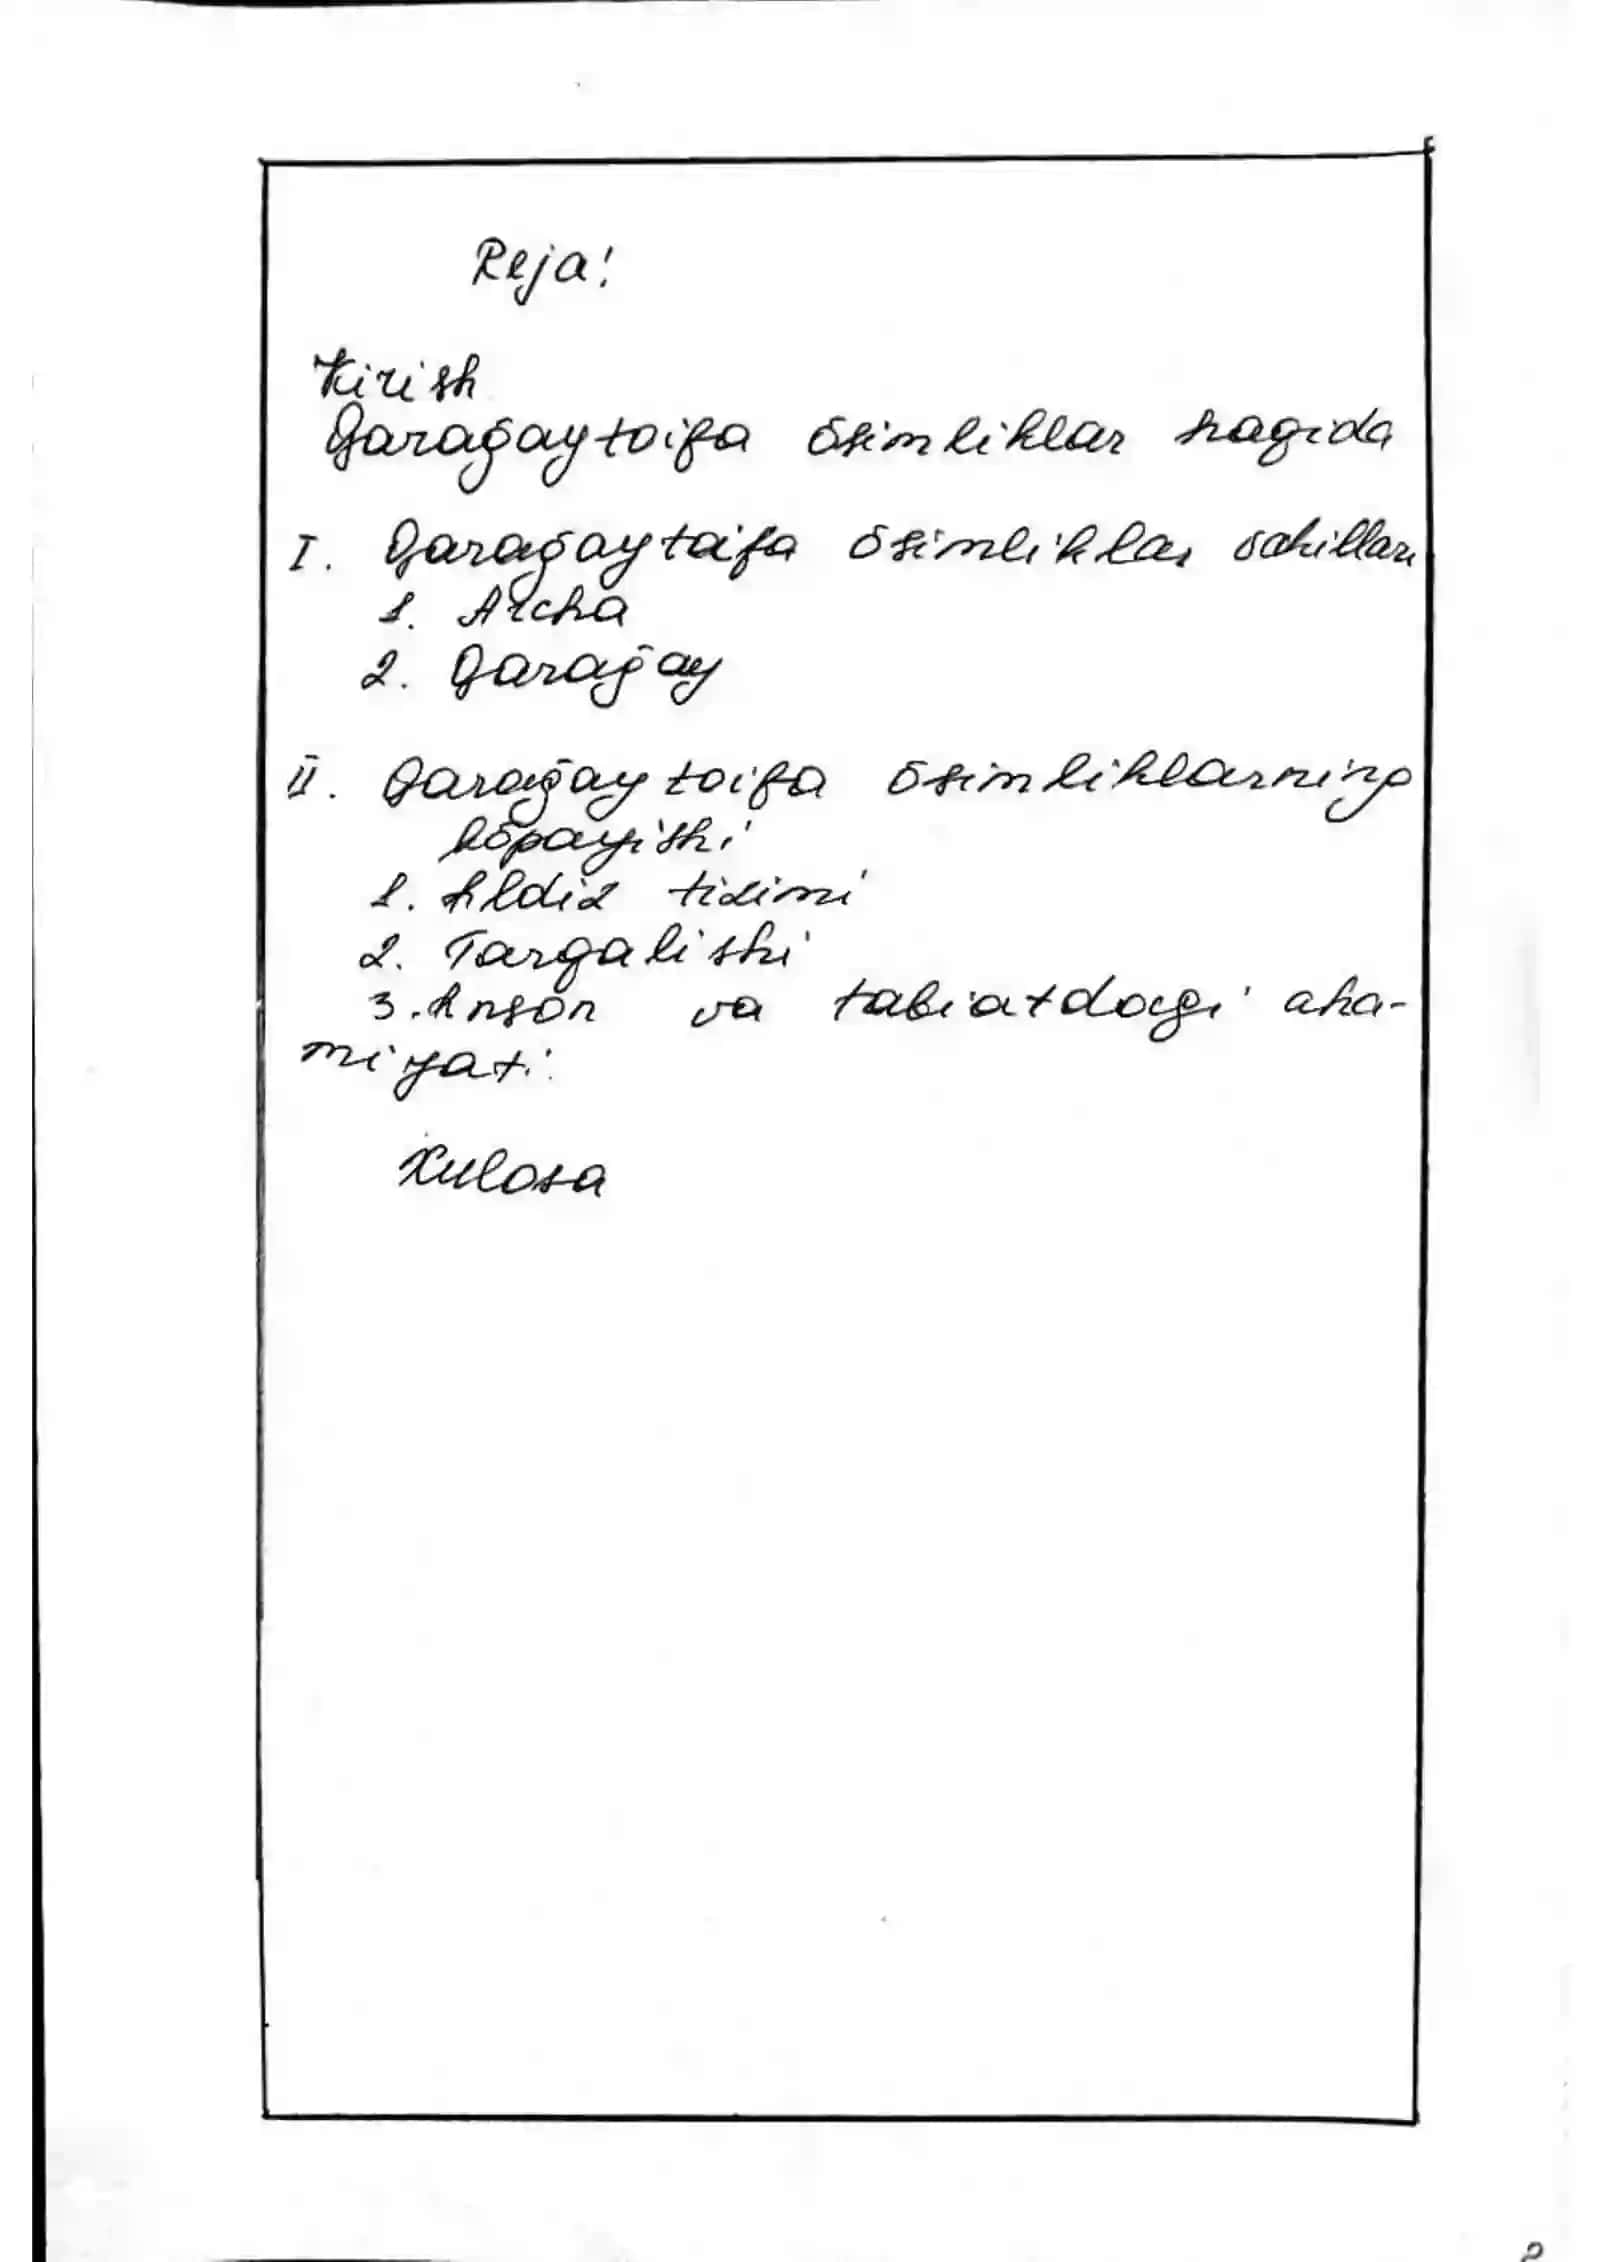 Reja!
Kirish
Qarağaytoifa ōsimliklar haqida
I. Qarağaytoifa ōsimliklar vakillari
1. Archa
2. Qarağay
II. Qarağaytoifa ōsimliklarning
kōpayishi
1. Ildiz tizimi
2. Tarqalishi
3. Inson va tabiatdagi aha-
miyati.
Xulosa